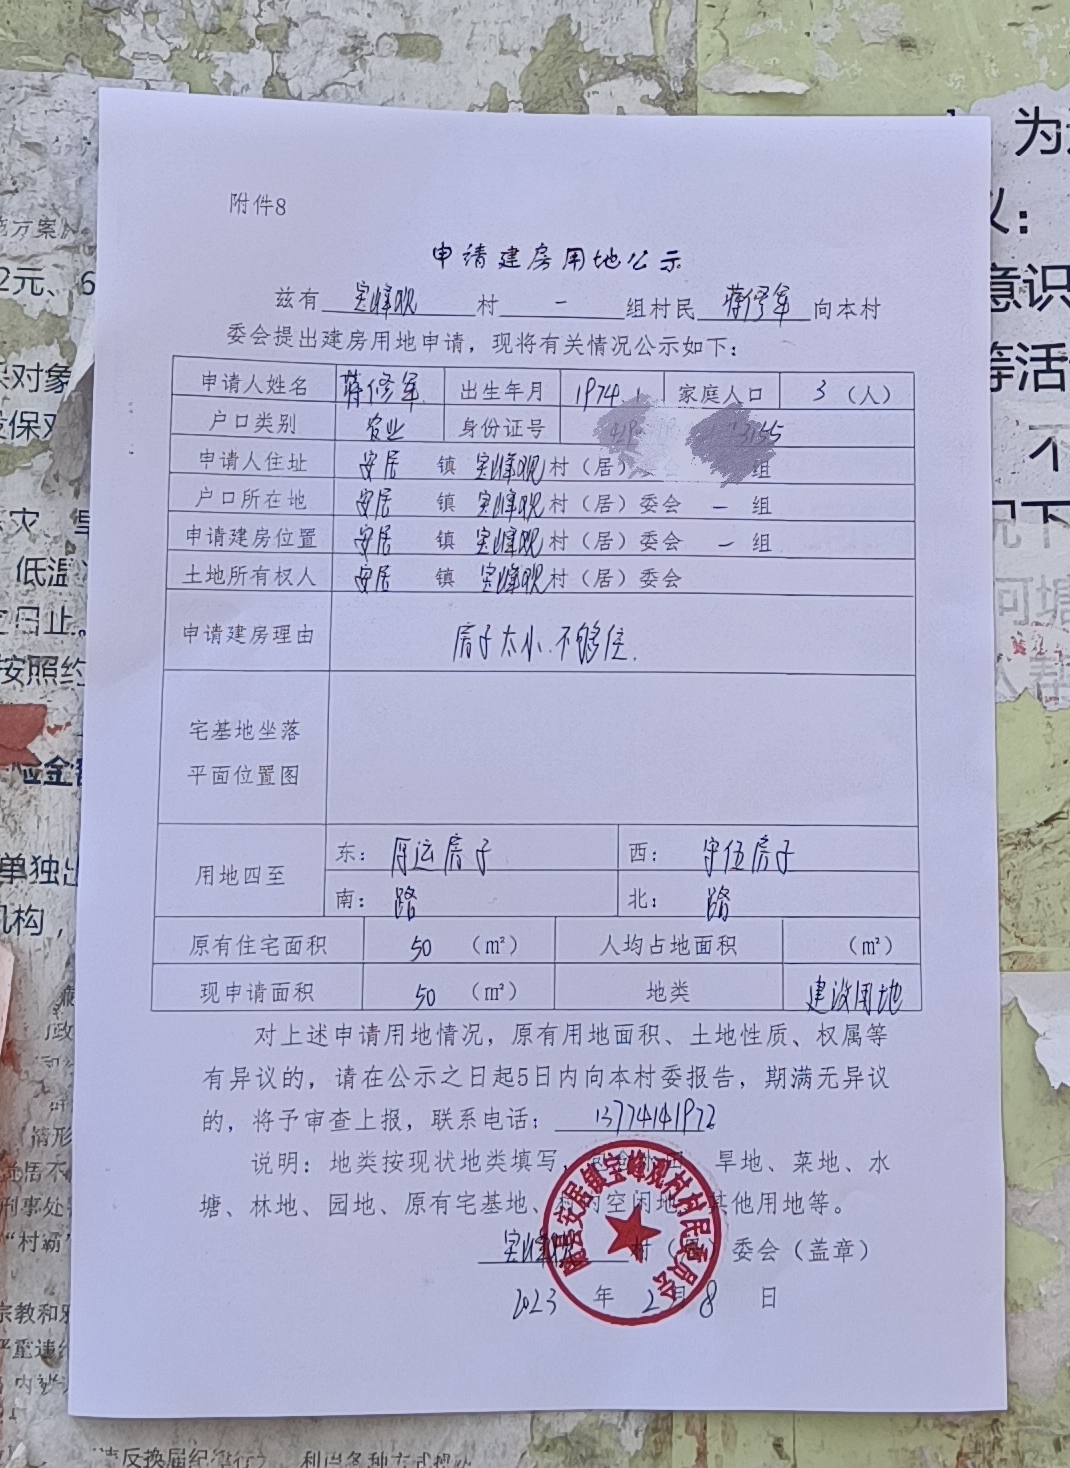 附件8
申请建房用地公示
兹有 宝峰观 村 一 组村民 蒋修军 向本村
委会提出建房用地申请，现将有关情况公示如下：
申请人姓名 蒋修军 出生年月 1974 1 家庭人口 3 （人）
户口类别 农业 身份证号
申请人住址 安居 镇 宝峰观 村（居） 组
户口所在地 安居 镇 宝峰观 村（居）委会 一 组
申请建房位置 安居 镇 宝峰观 村（居）委会 一 组
土地所有权人 安居 镇 宝峰观 村（居）委会
申请建房理由 房子太小.不够住.
宅基地坐落
平面位置图
用地四至
东： 厚运房子 西： 守伍房子
南： 路 北： 路
原有住宅面积 50 （m²） 人均占地面积 （m²）
现申请面积 50 （m²） 地类 建设用地
对上述申请用地情况，原有用地面积、土地性质、权属等
有异议的，请在公示之日起5日内向本村委报告，期满无异议
的，将予审查上报，联系电话： 13774141972
说明：地类按现状地类填写， 旱地、菜地、水
塘、林地、园地、原有宅基地、村内空闲地、其他用地等。
宝峰观 村（居）委会（盖章）
2023 年 2 月 8 日
随县安居镇宝峰观村村民委员会
为
议：
意识
等活
不
况下
河塘
帮
施方案》
2元、6
保对象
保对
灾、旱
低温
之日止。
按照约
险金
单独出
机构，
情形
活不
刑事处
“村霸”
宗教和邪
严重违
内
反换届纪 利用各种方式